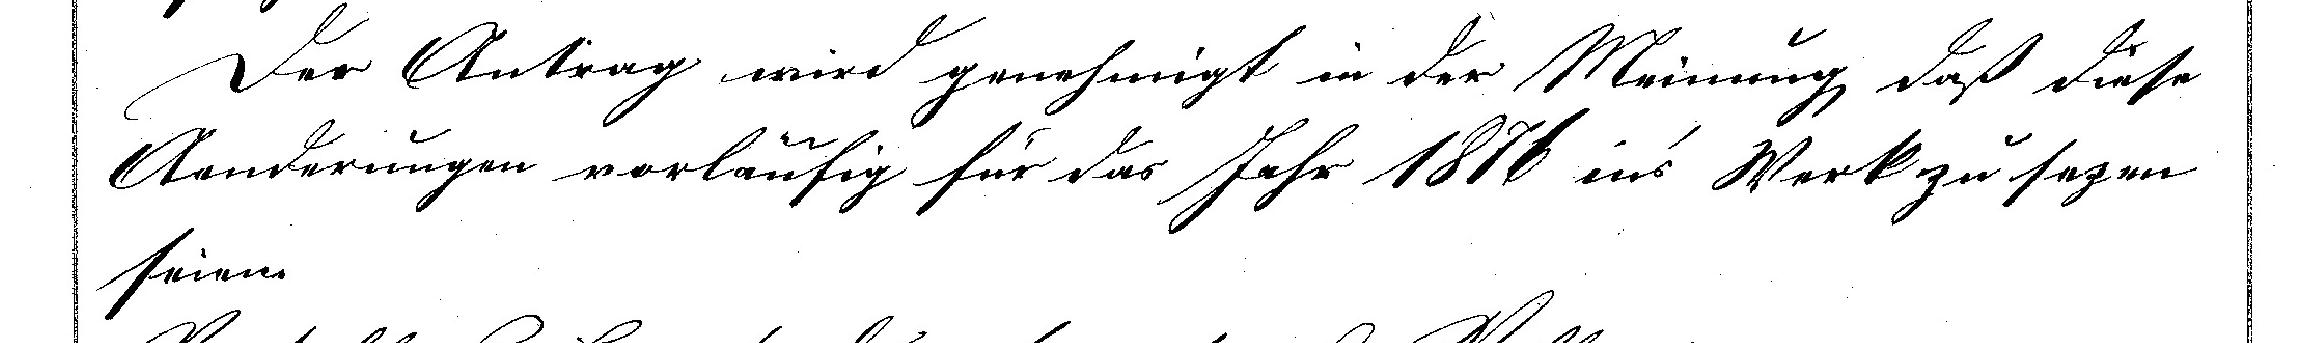 Der Antrag wird genehmigt in der Meinung, daß diese
Aenderungen vorläufig für das Jahr 1876 in's Werk zu sezen
seien.